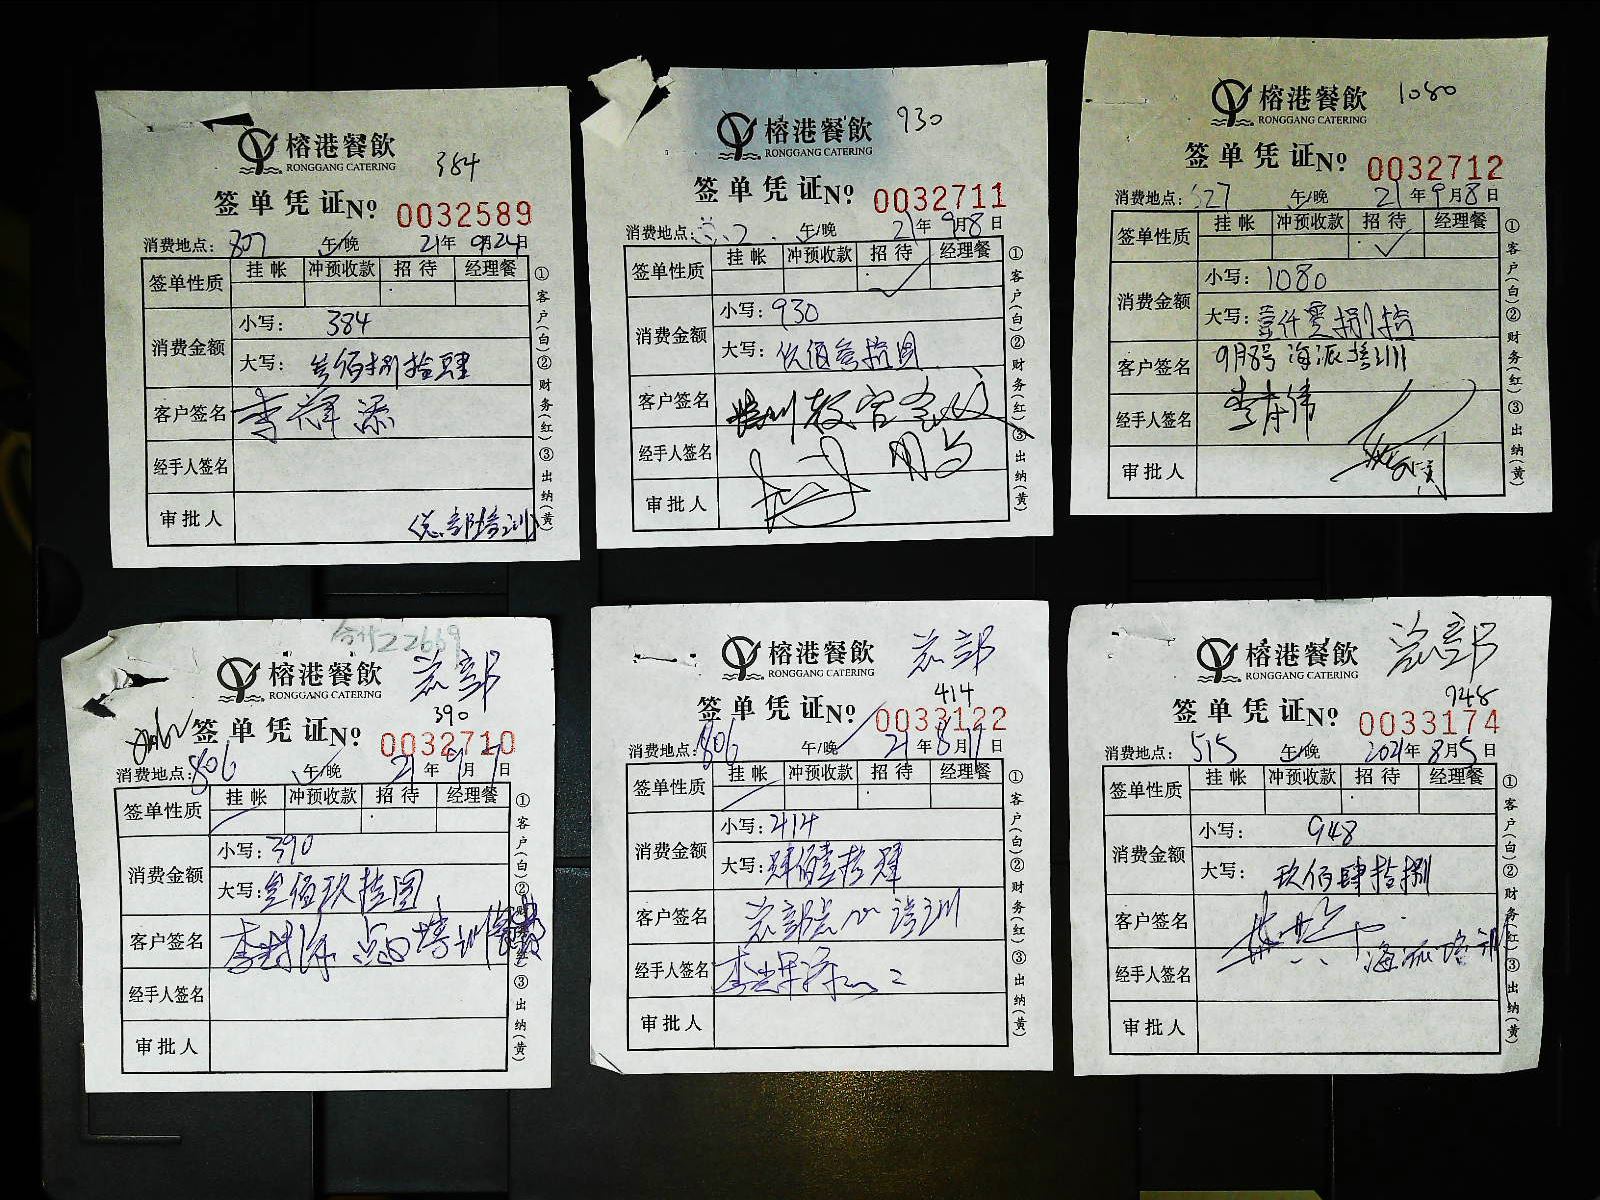 榕港餐飲
RONGGANG CATERING
384
签单凭证 No. 0032589
消费地点: 807 午/晚 21年9月24日
签单性质 挂帐 冲预收款 招待 经理餐
消费金额 小写: 384
大写: 叁佰捌拾肆
客户签名
经手人签名
审批人 (总部培训)
①客户(白)②财务(红)③出纳(黄)
榕港餐飲 930
RONGGANG CATERING
签单凭证 No. 0032711
消费地点: 午/晚 21年9月8日
签单性质 挂帐 冲预收款 招待 经理餐
消费金额 小写: 930
大写: 玖佰叁拾圆
客户签名 培训教官
经手人签名
审批人
①客户(白)②财务(红)③出纳(黄)
榕港餐飲 1080
RONGGANG CATERING
签单凭证 No. 0032712
消费地点: 527 午/晚 21年9月8日
签单性质 挂帐 冲预收款 招待 经理餐
消费金额 小写: 1080
大写: 壹仟零捌拾
客户签名 9月8号海派培训
经手人签名
审批人
①客户(白)②财务(红)③出纳(黄)
合计22669
榕港餐飲 总部
RONGGANG CATERING
390
签单凭证 No. 0032710
消费地点: 806 午/晚 21年9月7日
签单性质 挂帐 冲预收款 招待 经理餐
消费金额 小写: 390
大写: 叁佰玖拾圆
客户签名
经手人签名
审批人
①客户(白)②财务(红)③出纳(黄)
榕港餐飲 总部
RONGGANG CATERING
414
签单凭证 No. 0033122
消费地点: 806 午/晚 21年8月11日
签单性质 挂帐 冲预收款 招待 经理餐
消费金额 小写: 414
大写: 肆佰壹拾肆
客户签名 总部
经手人签名
审批人
①客户(白)②财务(红)③出纳(黄)
榕港餐飲 总部
RONGGANG CATERING
948
签单凭证 No. 0033174
消费地点: 515 午/晚 2021年8月5日
签单性质 挂帐 冲预收款 招待 经理餐
消费金额 小写: 948
大写: 玖佰肆拾捌
客户签名
经手人签名 海派培训
审批人
①客户(白)②财务(红)③出纳(黄)